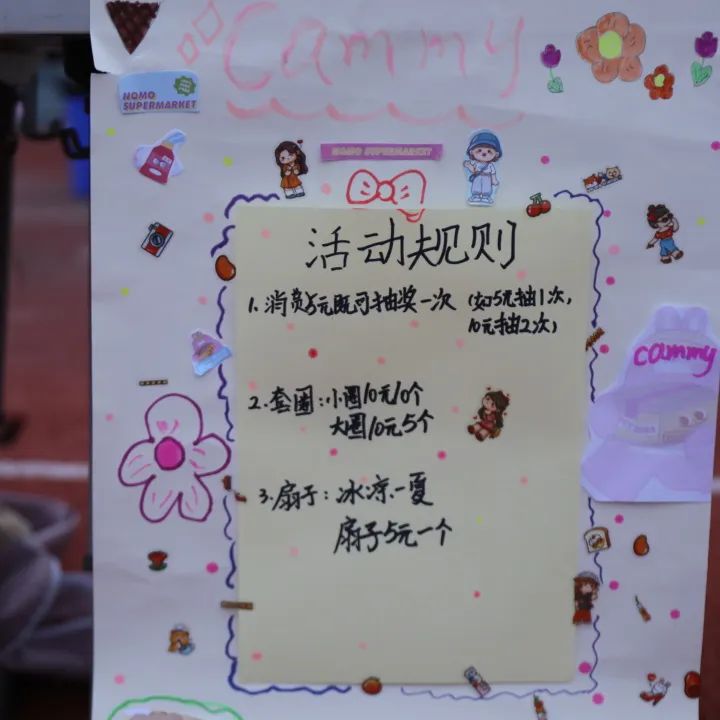 Cammy
NOMO
SUPERMARKET
NOMO SUPERMARKET
活动规则
1. 消费5元既可抽奖一次 (如5元抽1次,
10元抽2次)
cammy
2. 套圈:小圈10元10个
大圈10元5个
3. 扇子:冰凉一夏
扇子5元一个